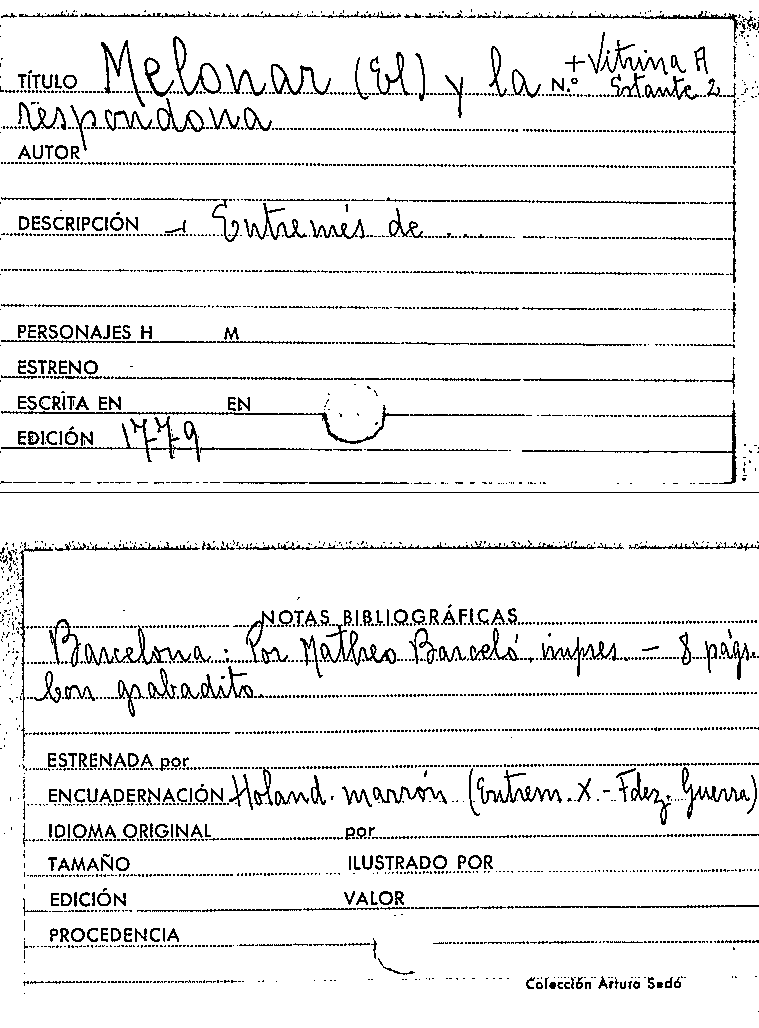 + Vitrina A
TÍTULO Melonar (El) y la N.º Estante 2
respondona
AUTOR
DESCRIPCIÓN Entremés de ...
PERSONAJES H M
ESTRENO
ESCRITA EN EN
EDICIÓN 1779
NOTAS BIBLIOGRÁFICAS
Barcelona: Por Matheo Barceló, impres. — 8 págs.
Con grabadito.
ESTRENADA por
ENCUADERNACIÓN Holand. marrón (Entrem. X. - Fdez. Guerra)
IDIOMA ORIGINAL por
TAMAÑO ILUSTRADO POR
EDICIÓN VALOR
PROCEDENCIA
Colección Arturo Sedó